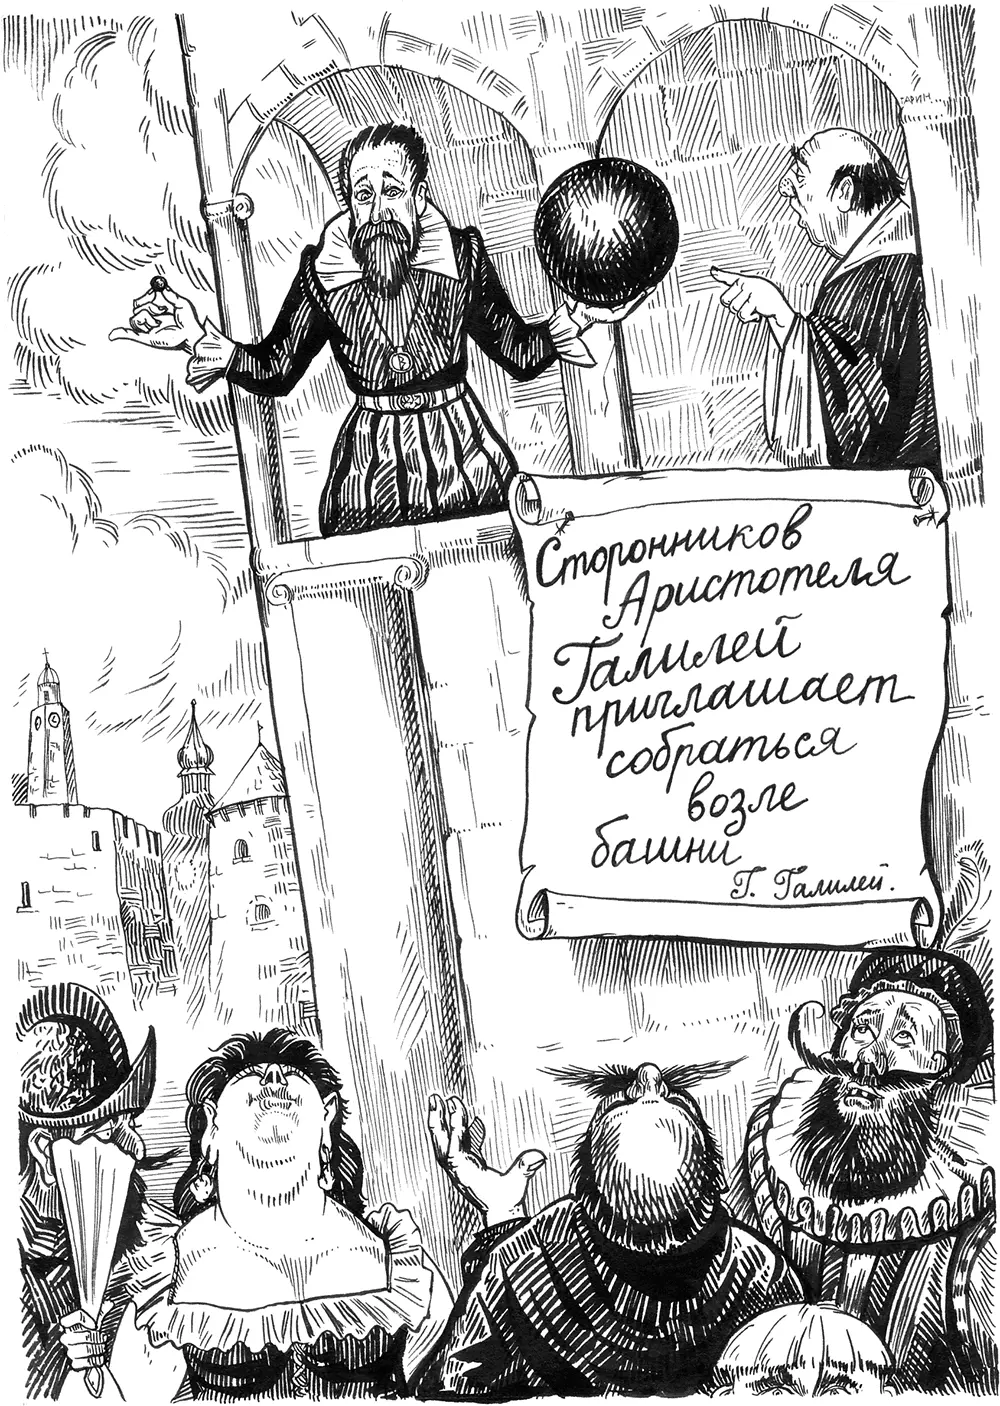 ГАРИН
Сторонников
Аристотеля
Галилей
приглашает
собраться
возле
башни
Г. Галилей.